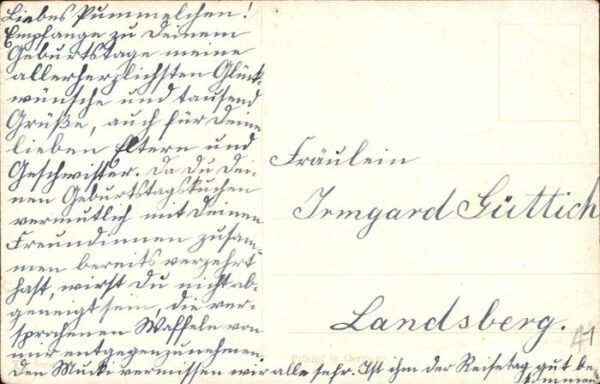 Liebes Pummelchen!
Empfange zu Deinem
Geburtstage meine
allerherzlichsten Glück-
wünsche und tausend
Grüße, auch für Deine
lieben Eltern und
Geschwister. Da Du Dei-
nen Geburtstagskuchen
vermutlich mit Deinen
Freundinnen zusam-
men bereits verzehrt
hast, wirst Du nicht ab-
geneigt sein, die ver-
sprochenen Waffeln von
mir entgegenzunehmen.
Den Mucki vermissen wir alle sehr. Ist ihm der Reisetag gut be-
Fräulein
Irmgard Güttich
Landsberg.
Printed in Germany
41